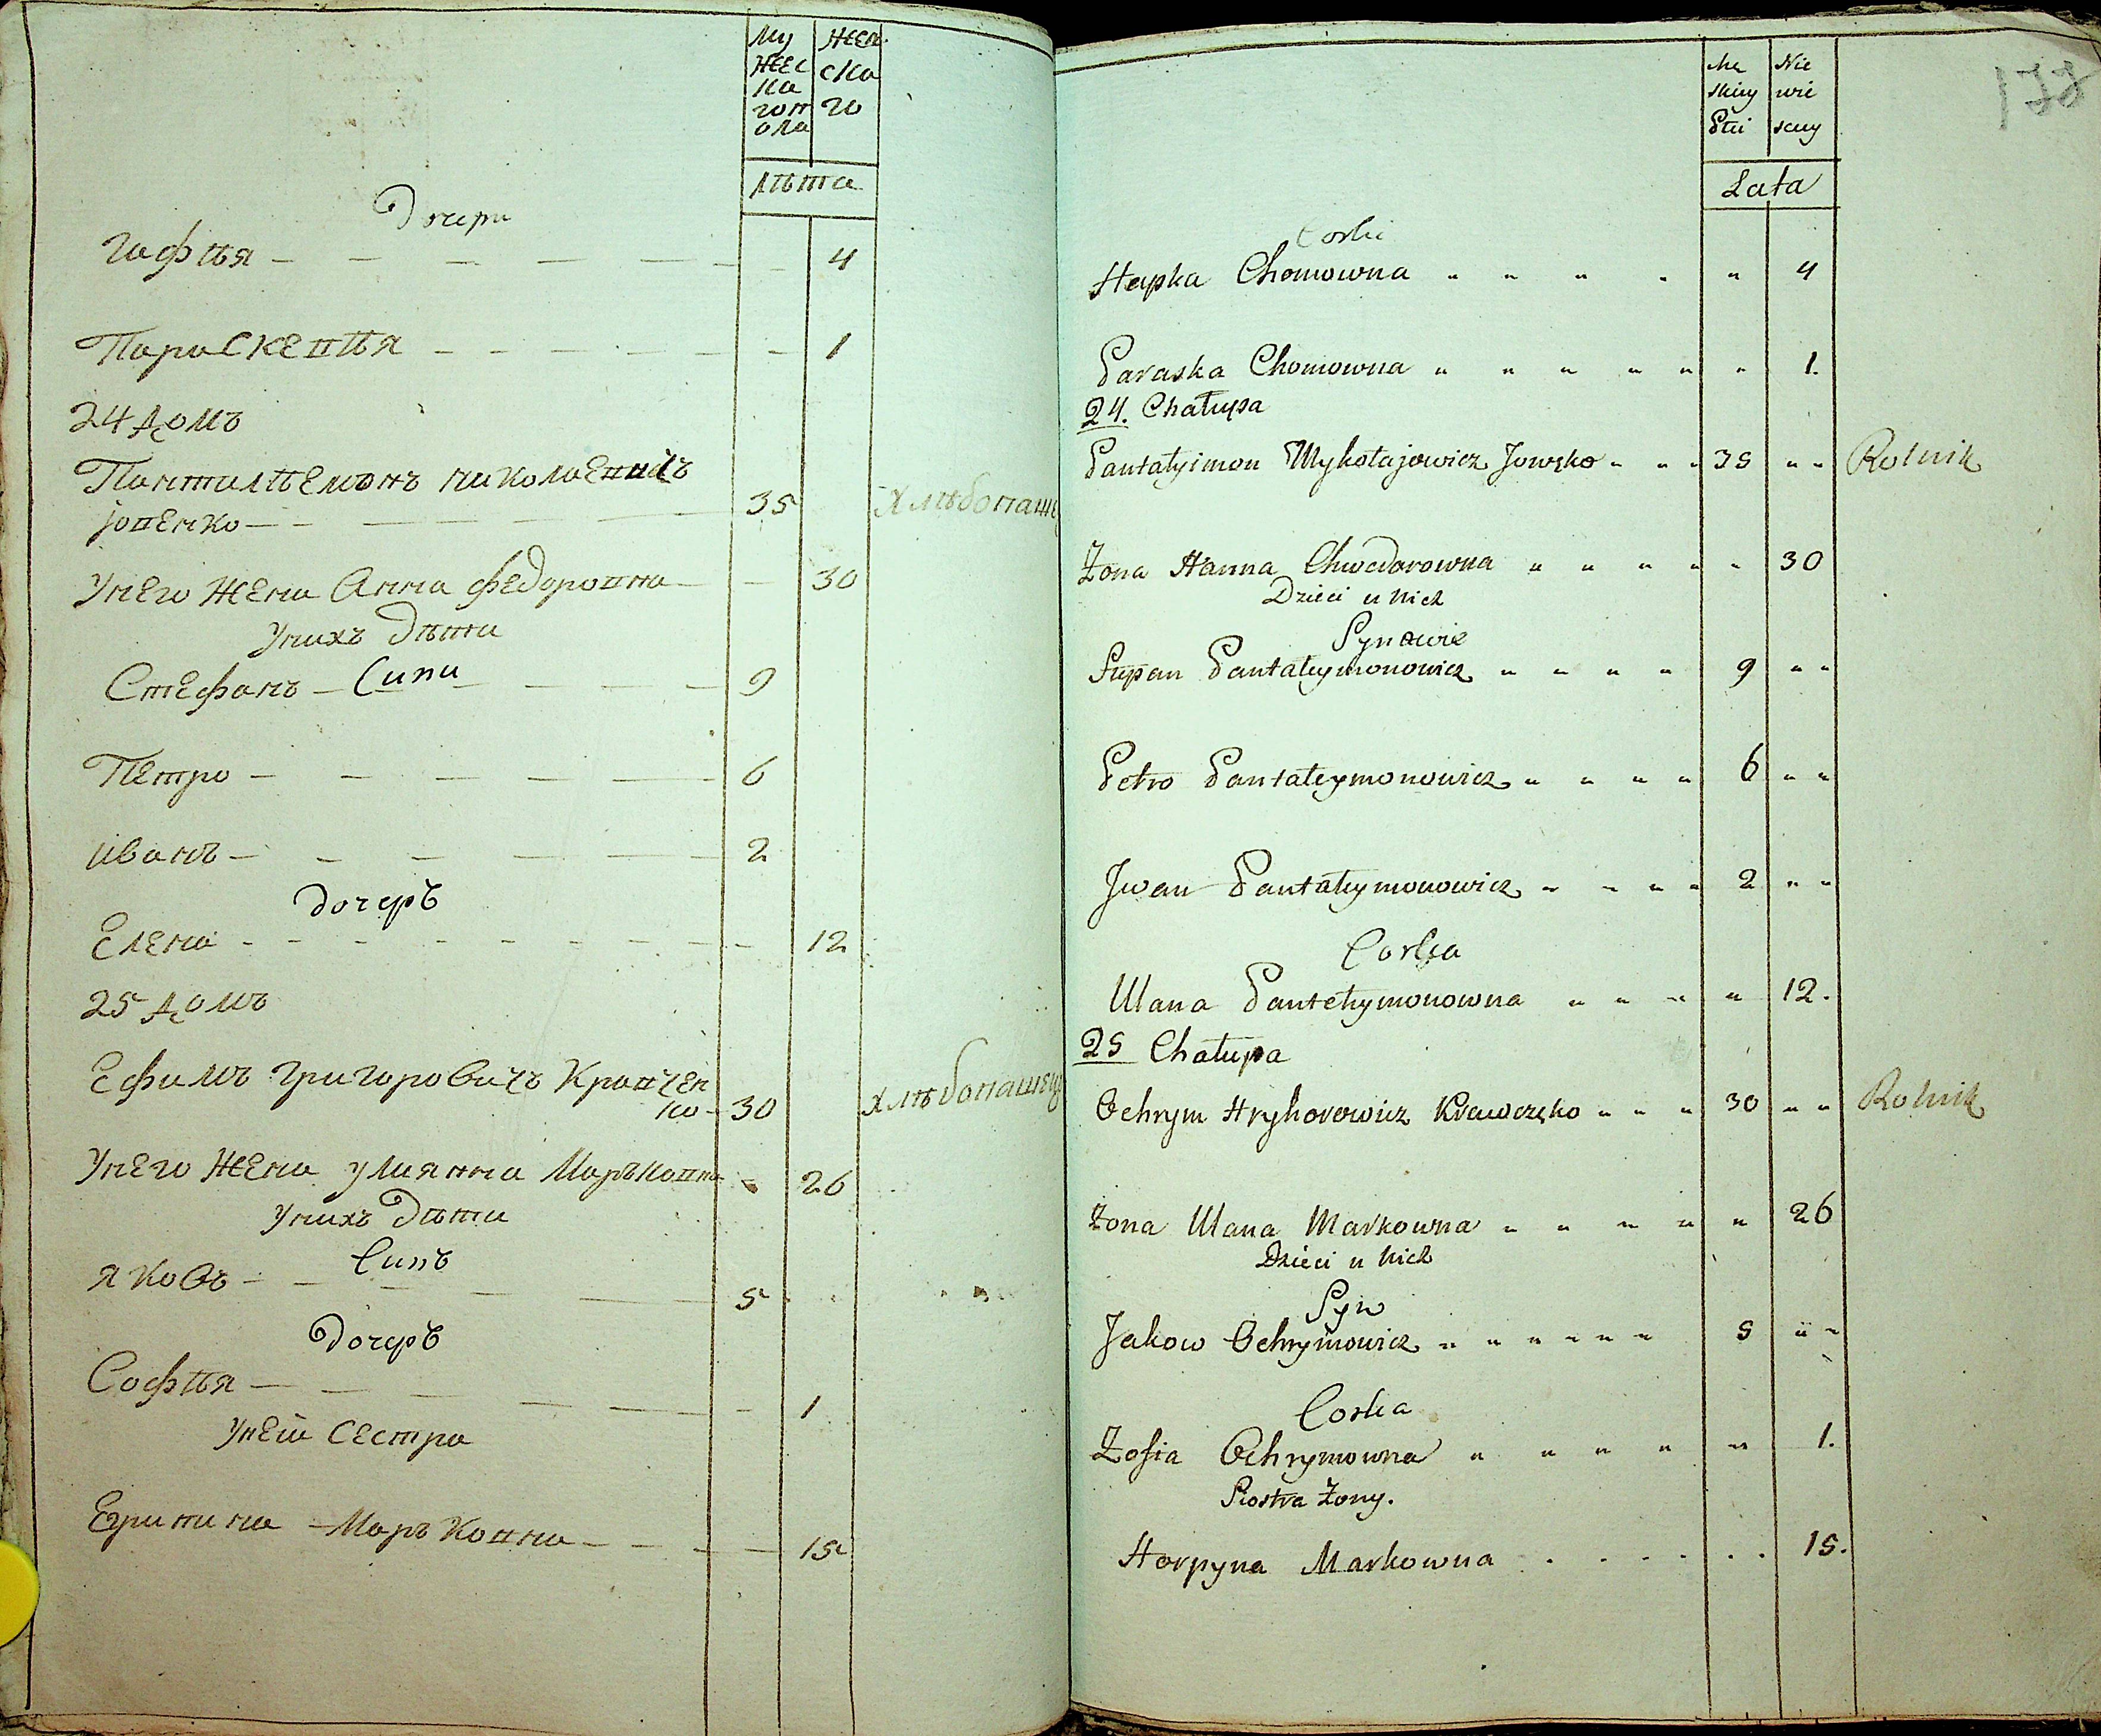 Му
жес
ка
гоп
ола
жен
ска
го
лѣта
Дочери
Гафія — — — — — — 4
Параскевія — — — — — — 1
24 домъ
Пантилѣемонъ николаевичъ
Јовенко — — — — 35 хлѣбопаше
Унего жена Анна федоровна — — 30
Унихъ дѣти
Стефанъ — Сини — — — 9
Петро — — — — — 6
иванъ — — — — — 2
дочерь
Елена — — — — — — — 12
25 домъ
Ефимъ григоровичъ Кравчен
ко — 30 хлѣбопашец
Унего жена улиянна Марковна - 26
Унихъ дѣти
Синъ
яковъ — — — — — 5
дочерь
Софія — — — — — — 1
Унеи сестра
Егрипина — Марковна — — — — 15
Mę
skiey
Płci
Nie
wie
sciey
Lata
177
Corki
Hapka Chomowna " " " " " 4
Paraska Chomowna " " " " " " 1.
24. Chałupa
Pantałyimon Mykołajowicz Jowęko " " " 35 " " Rolnik
Żona Hanna Chwedorowna " " " " " 30
Dzieci u nich
Synowie
Stepan Pantałeymonowicz " " " " 9 " "
Petro Pantałeymonowicz " " " " 6 " "
Jwan Pantałeymonowicz " " " " 2 " "
Corka
Ulana Pantełeymonowna " " " " 12.
25 Chałupa
Ochrym Hryhorowicz Krawczęko " " " 30 " " Rolnik
Żona Ulana Markowna " " " " " 26
Dzieci u nich
Syn
Jakow Ochrymowicz " " " " " " 5 " "
Corka
Zofia Ochrymowna " " " " " 1.
Siostra Żony.
Horpyna Markowna . . . . . . 15.